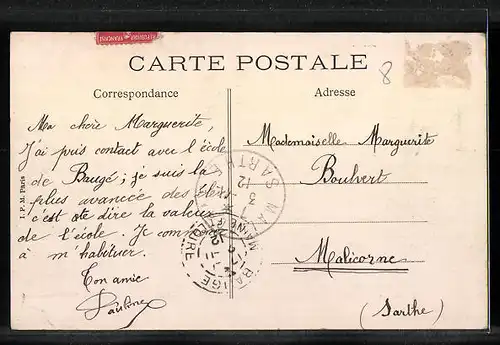 CARTE POSTALE
8
Correspondance
Adresse
Ma chère Marguerite,
J'ai pris contact avec l'école
de Baugé ; je suis la
plus avancée des
c'est te dire la valeur
de l'école. Je commence
à m'habituer.
Ton amie
Paulone
Mademoiselle Marguerite
Boulvert
Malicorne
(Sarthe)
I. P. M. Paris
MALICORNE
SARTHE
12
3
BAUGÉ
MAINE-ET-LOIRE